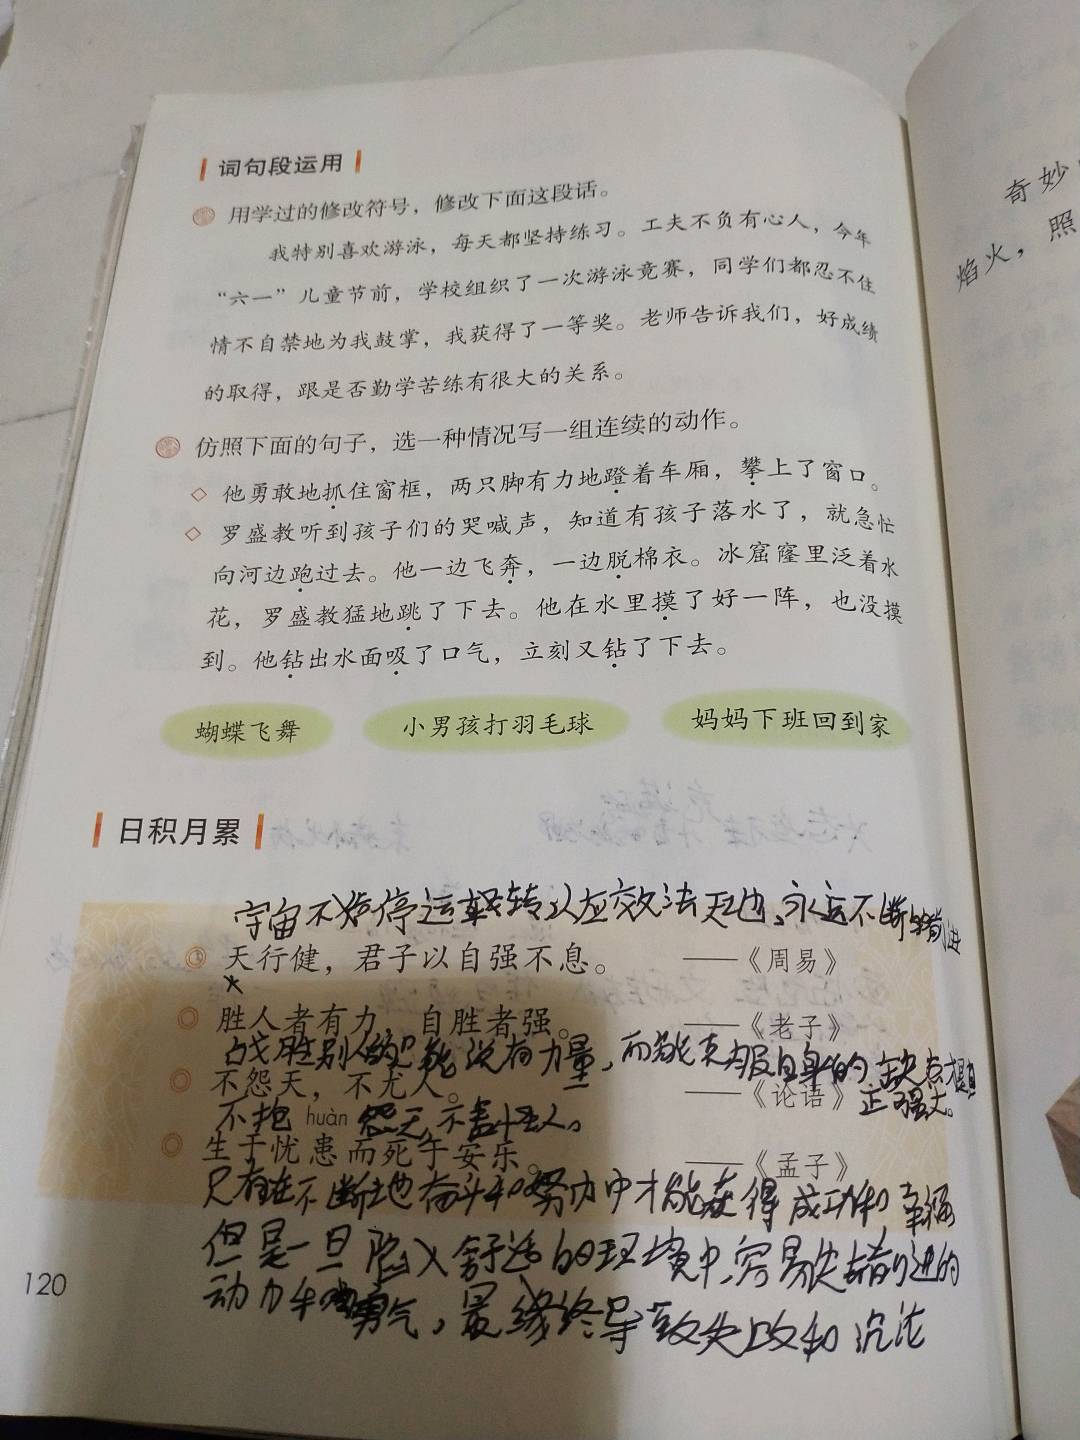 词句段运用
用学过的修改符号，修改下面这段话。
我特别喜欢游泳，每天都坚持练习。工夫不负有心人，今年
“六一”儿童节前，学校组织了一次游泳竞赛，同学们都忍不住
情不自禁地为我鼓掌，我获得了一等奖。老师告诉我们，好成绩
的取得，跟是否勤学苦练有很大的关系。
仿照下面的句子，选一种情况写一组连续的动作。
他勇敢地抓住窗框，两只脚有力地蹬着车厢，攀上了窗口。
罗盛教听到孩子们的哭喊声，知道有孩子落水了，就急忙
向河边跑过去。他一边飞奔，一边脱棉衣。冰窟窿里泛着水
花，罗盛教猛地跳了下去。他在水里摸了好一阵，也没摸
到。他钻出水面吸了口气，立刻又钻了下去。
蝴蝶飞舞 小男孩打羽毛球 妈妈下班回到家
日积月累
宇宙不停运转 应效法天地、永远不断的前进
天行健，君子以自强不息。 ——《周易》
胜人者有力，自胜者强。 ——《老子》
战胜别人的只能说有力量，而能克服自身的缺点才是真
正强大。
不怨天，不尤人。 ——《论语》
不抱 huàn 怨天 不责怪人。
生于忧患而死于安乐。 ——《孟子》
只有在不断地奋斗和努力中才能获得成功和幸福
但是一旦陷入舒适的环境中，容易失去前进的
动力和勇气，最终导致失败和沉沦
120
奇妙
焰火，照